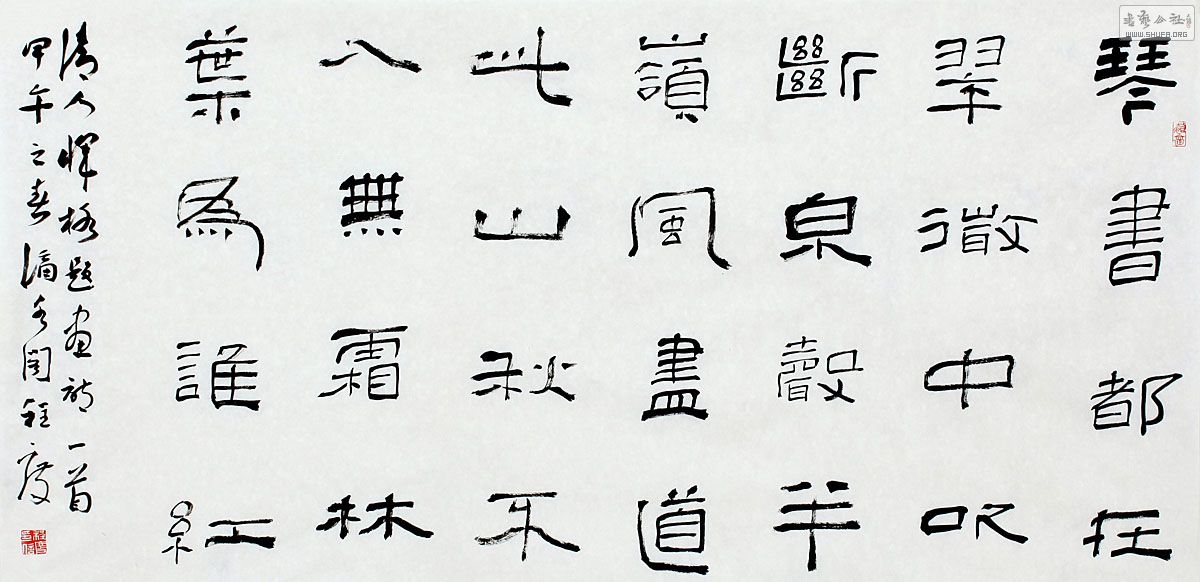 琴書都在
翠微中吹
斷泉聲半
嶺風盡道
此山秋不
入無霜林
葉為誰紅
清人惲格題畫詩一首
甲午之春
書藝公社
WWW.SHUFA.ORG